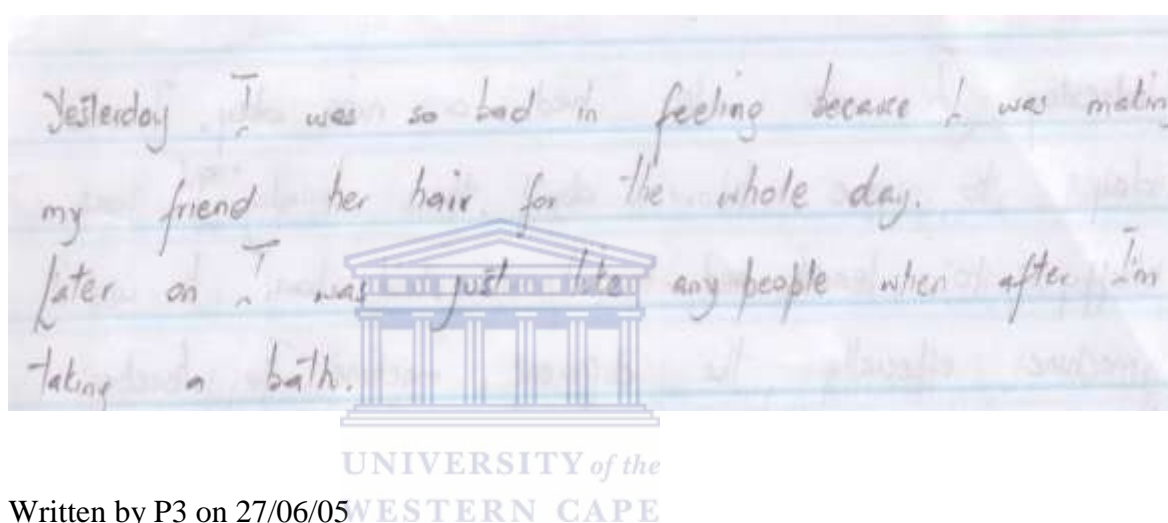 Yesterday I was so bad in feeling because I was making
my friend her hair for the whole day.
Later on I was just like any people when after I'm
taking a bath.
UNIVERSITY of the
WESTERN CAPE
Written by P3 on 27/06/05